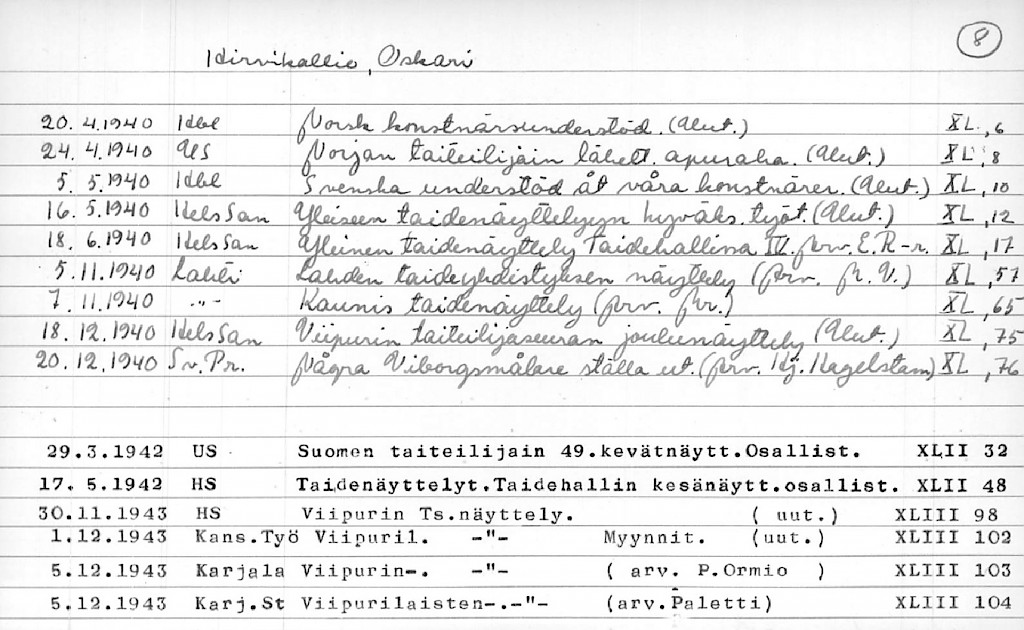 8
Hirvikallio, Oskari
20. 4.1940 Hbl Norsk konstnärsunderstöd. (Uut.) XL, 6
24. 4.1940 US Norjan taiteilijain lähett. apuraha. (Uut.) XL, 8
5. 5.1940 Hbl Svenska understöd åt våra konstnärer. (Uut.) XL, 10
16. 5.1940 Hels San Yleiseen taidenäyttelyyn hyväks. työt. (Uut.) XL, 12
18. 6.1940 Hels San Yleinen taidenäyttely Taidehallissa IV. arv. E.R-r. XL, 17
5.11.1940 Lahti Lahden taideyhdistyksen näyttely (arv. A. V.) XL, 57
7.11.1940 -"- Kaunis taidenäyttely (arv. Ar.) XL, 65
18.12.1940 Hels San Viipurin taiteilijaseuran joulunäyttely (Uut.) XL, 75
20.12.1940 Sv. Pr. Några Viborgsmålare ställa ut. (arv. Hj. Hagelstam) XL, 76
29.3.1942 US Suomen taiteilijain 49.kevätnäytt.Osallist. XLII 32
17. 5.1942 HS Taidenäyttelyt.Taidehallin kesänäytt.osallist. XLII 48
30.11.1943 HS Viipurin Ts.näyttely. ( uut.) XLIII 98
1.12.1943 Kans.Työ Viipuril. -"- Myynnit. (uut.) XLIII 102
5.12.1943 Karjala Viipurin-. -"- ( arv. P.Ormio ) XLIII 103
5.12.1943 Karj.St Viipurilaisten-.-"- (arv.Paletti) XLIII 104